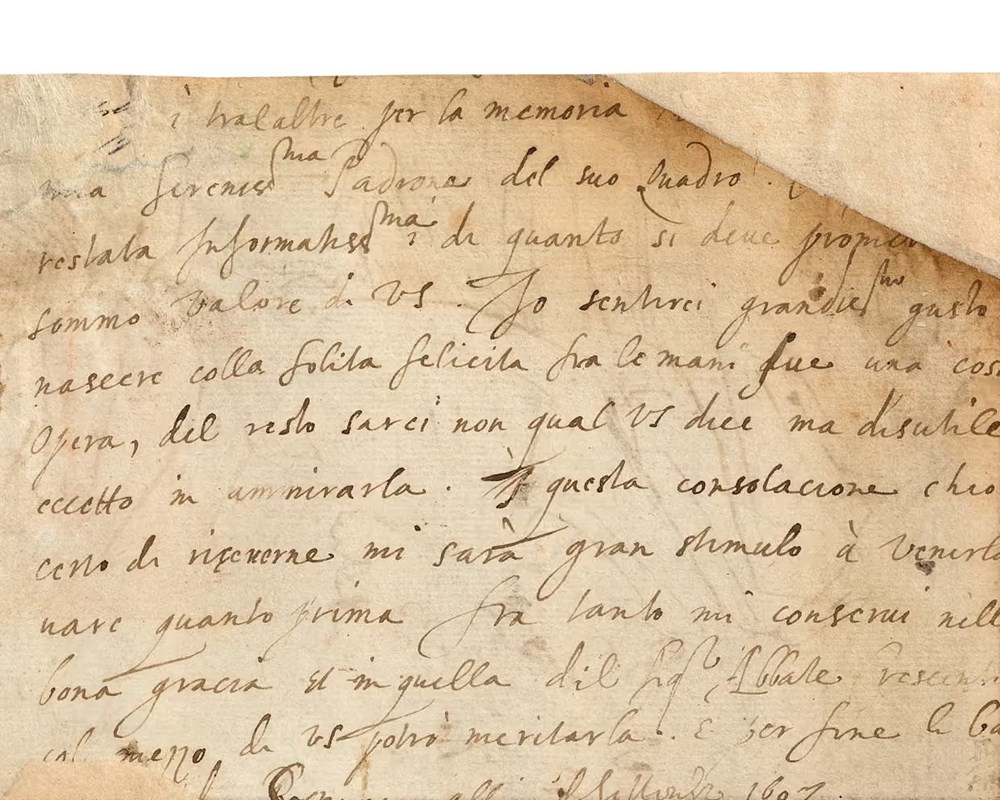 i tralaltre per la memoria
mia Sereniss^ma Padrona del suo Quadro.
restata Informatiss^ma i di quanto si deve
sommo valore di VS. Io sentirei grandiss^mo gusto
nascere colla solita felicita fra le mani sue una cosi
Opera, del resto sarei non qual VS dice ma disutile
eccetto in ammirarla. questa consolacione chio
certo di riceverne mi sarà gran stimulo à venirla
vare quanto prima fra tanto mi conservi nell
bona gracia et in quella dil Sig^r Abbate
col mezo di VS potrò meritarla. E per fine le ba
alli 1607.